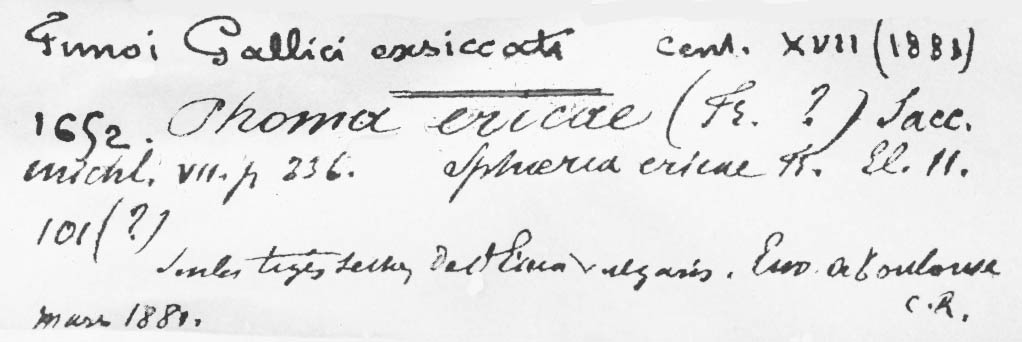 Fungi Gallici exsiccati Cent. XVII (1881)
1652. Phoma ericae (Fr. ?) Sacc.
michl. VII. p 236. Sphaeria ericae Fr. El. II.
101 (?)
Sur les tiges sèches de l'Erica vulgaris. Env. de Toulouse
C. R.
mars 1881.